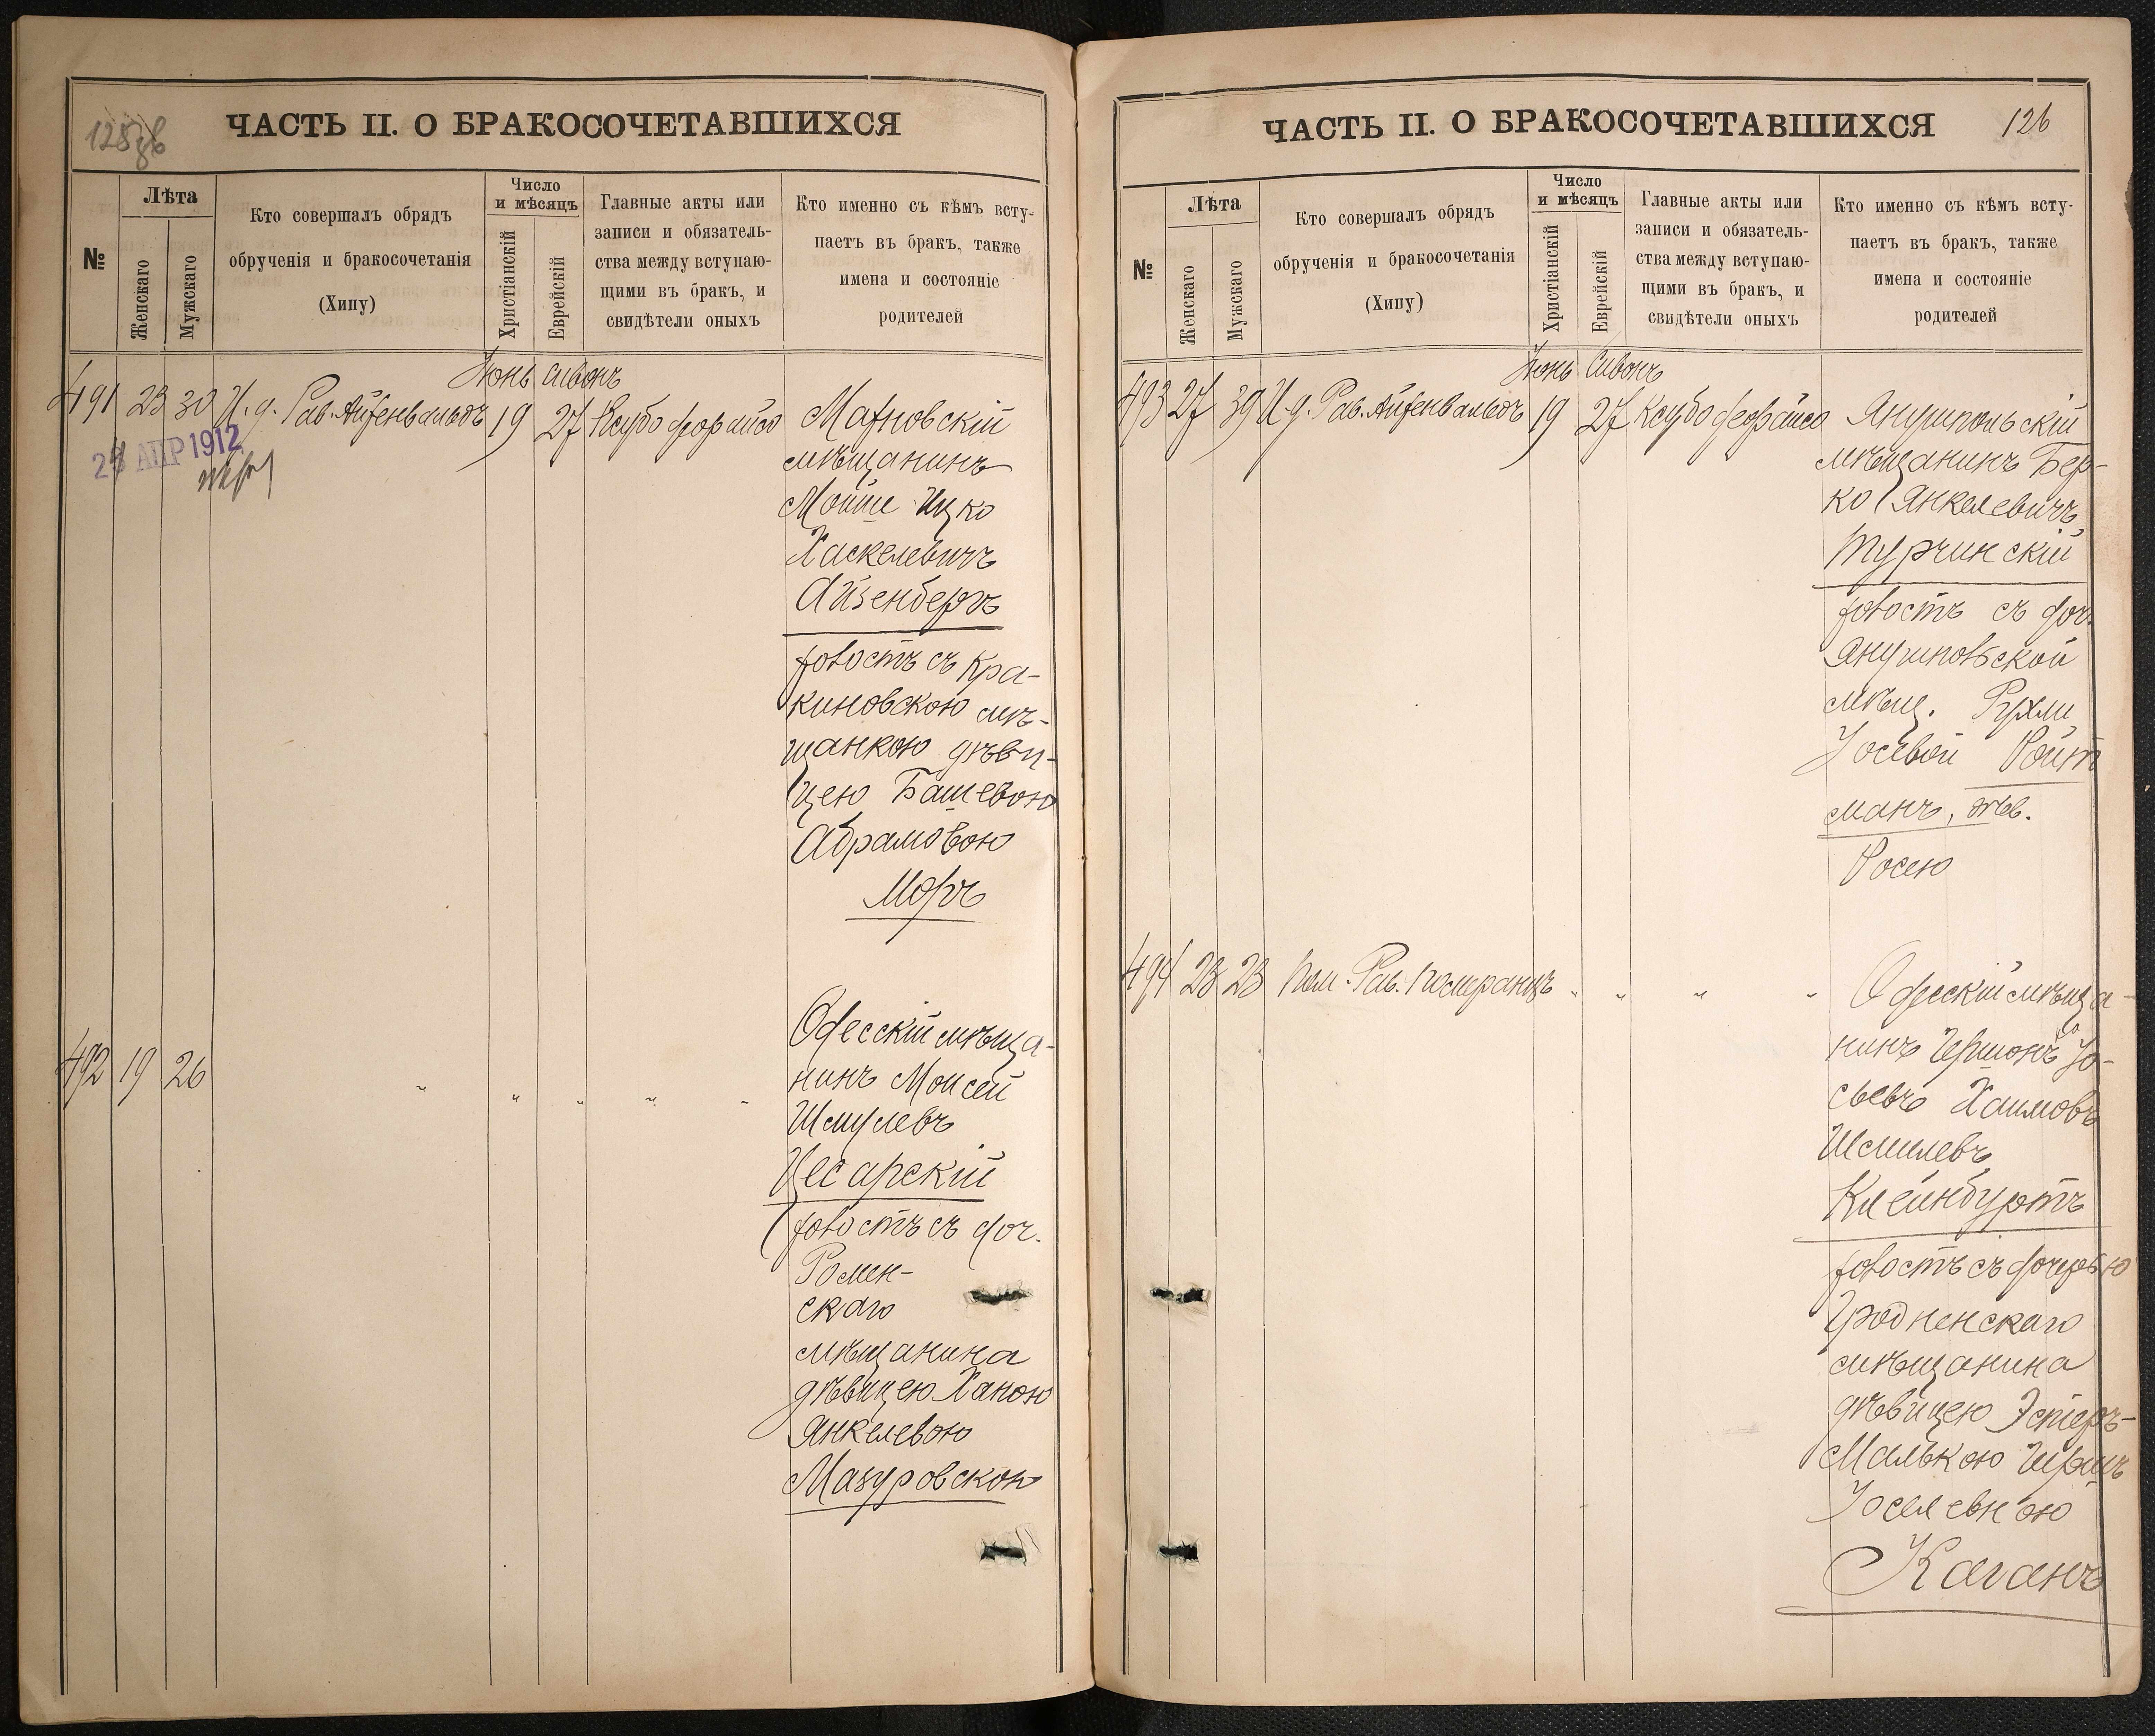 ЧАСТЬ II. О БРАКОСОЧЕТАВШИХСЯ
№
Лѣта
Женскаго
Мужскаго
Кто совершалъ обрядъ
обрученія и бракосочетанія
(Хипу)
Число
и мѣсяцъ
Христіанскій
Еврейскій
Главные акты или
записи и обязатель-
ства между вступаю-
щими въ бракъ, и
свидѣтели оныхъ
Кто именно съ кѣмъ всту-
паетъ въ бракъ, также
имена и состояніе
родителей
Іюнь Сивонъ
491 23 30 И. д. Рав. Айзенвальдъ 19 27
АПР 1912
Махновскій
мѣщанинъ
Мойше Ицко
Хаскелевичъ
Айзенбергъ
холостъ съ Кра-
киновскою мѣ-
щанкою дѣви-
цею Башевою
Абрамовою
492 19 26 " " " " "
Одесскій мѣща-
нинъ Моисей
Шмулевъ
Цесарскій
холостъ съ доч.
Ромен-
скаго
мѣщанина
дѣвицею Ханою
Янкелевою
Мазуровскою
ЧАСТЬ II. О БРАКОСОЧЕТАВШИХСЯ
126
№
Лѣта
Женскаго
Мужскаго
Кто совершалъ обрядъ
обрученія и бракосочетанія
(Хипу)
Число
и мѣсяцъ
Христіанскій
Еврейскій
Главные акты или
записи и обязатель-
ства между вступаю-
щими въ бракъ, и
свидѣтели оныхъ
Кто именно съ кѣмъ всту-
паетъ въ бракъ, также
имена и состояніе
родителей
Іюнь Сивонъ
493 27 39 И. д. Рав. Айзенвальдъ 19 27
Янушпольскій
мѣщанинъ Бер-
ко Янкелевичъ
Турчинскій
холостъ съ доч.
Янушпольской
мѣщ. Рухли
Іосевой Ройт
манъ, дѣв.
Росею
494 23 23 Пом. Рав. Померанцъ " " " "
Одесскій мѣща-
нинъ Гершонъ Іо-
сьевъ Хаимовъ
Шмилевъ
Клейнбуртъ
холостъ съ дочерью
Гродненскаго
мѣщанина
дѣвицею Эстеръ-
Малькою Гершъ
Іоселевною
Каганъ